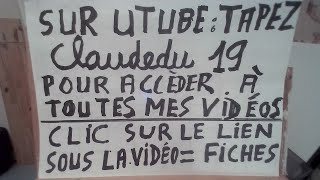 SUR UTUBE: TAPEZ
Claudedu 19
POUR ACCÈDER À
TOUTES MES VIDÉOS
CLIC SUR LE LIEN
SOUS LA VIDÉO = FICHES